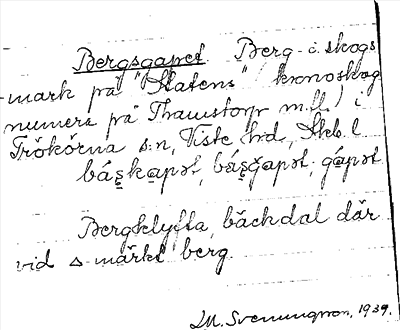 Bergsgapet. Berg i skogs
-mark på "Statens" (kronoskog
numera på Thamstorp m.fl.) i
Trökörna s:n, Viste hd, Skb. l
báşkapət, báşgapət, gápət
Bergklyfta, bäckdal där
vid △ märkt berg.
M. Svenungson, 1939.